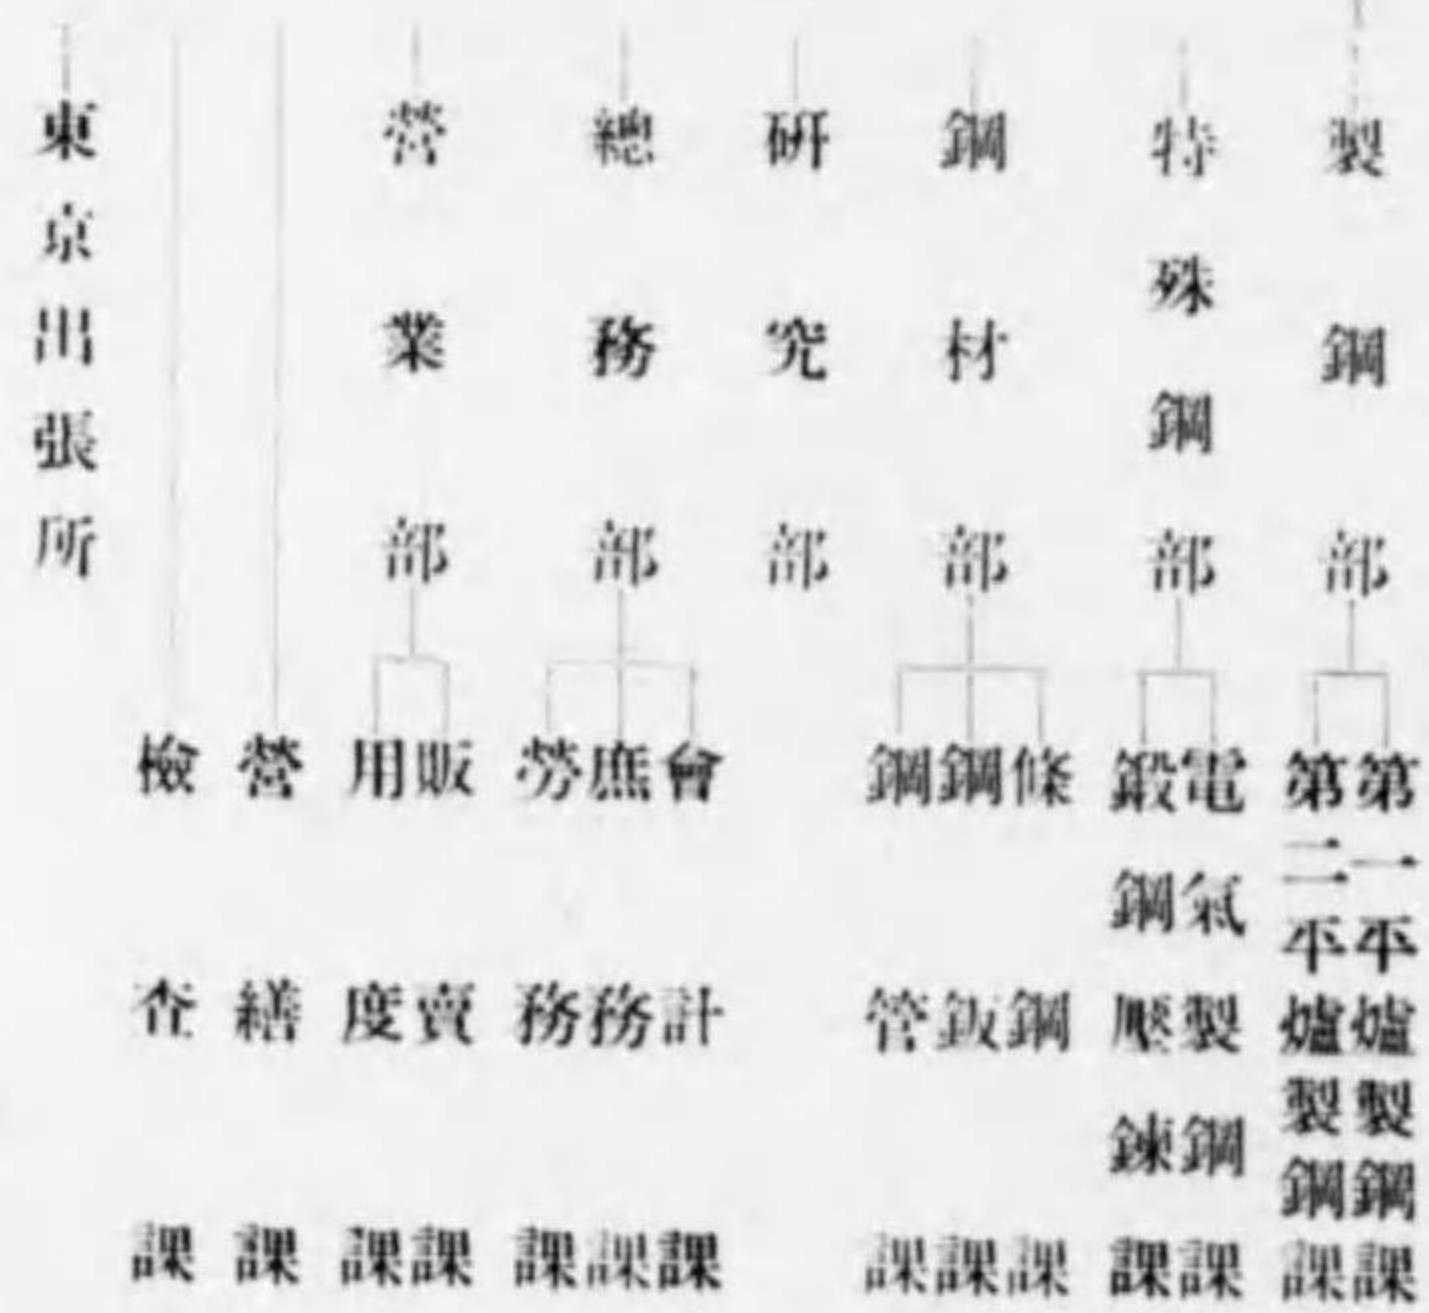 製鋼部
第一平爐製鋼課
第二平爐製鋼課
特殊鋼部
電氣製鋼課
鍛鋼壓鍊課
鋼材部
條鋼課
鋼鈑課
鋼管課
硏究部
總務部
會計課
庶務課
勞務課
營業部
販賣課
用度課
營繕課
檢査課
東京出張所